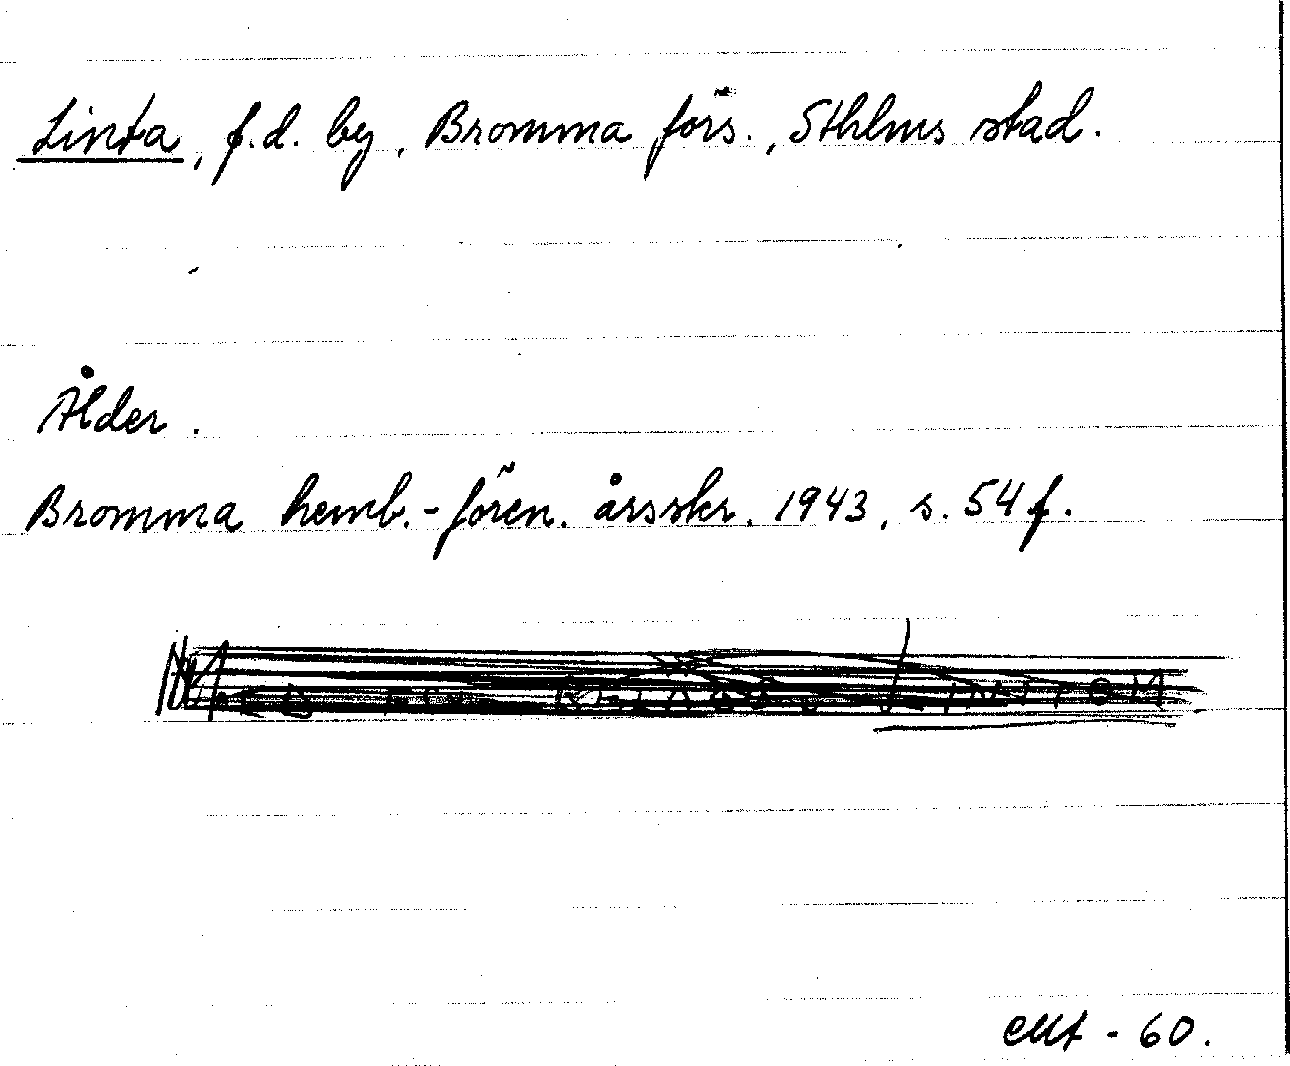 Linta, f.d. by, Bromma förs., Sthlms stad.
Ålder.
Bromma hemb.-fören. årsskr. 1943, s. 54 f.
- 60.